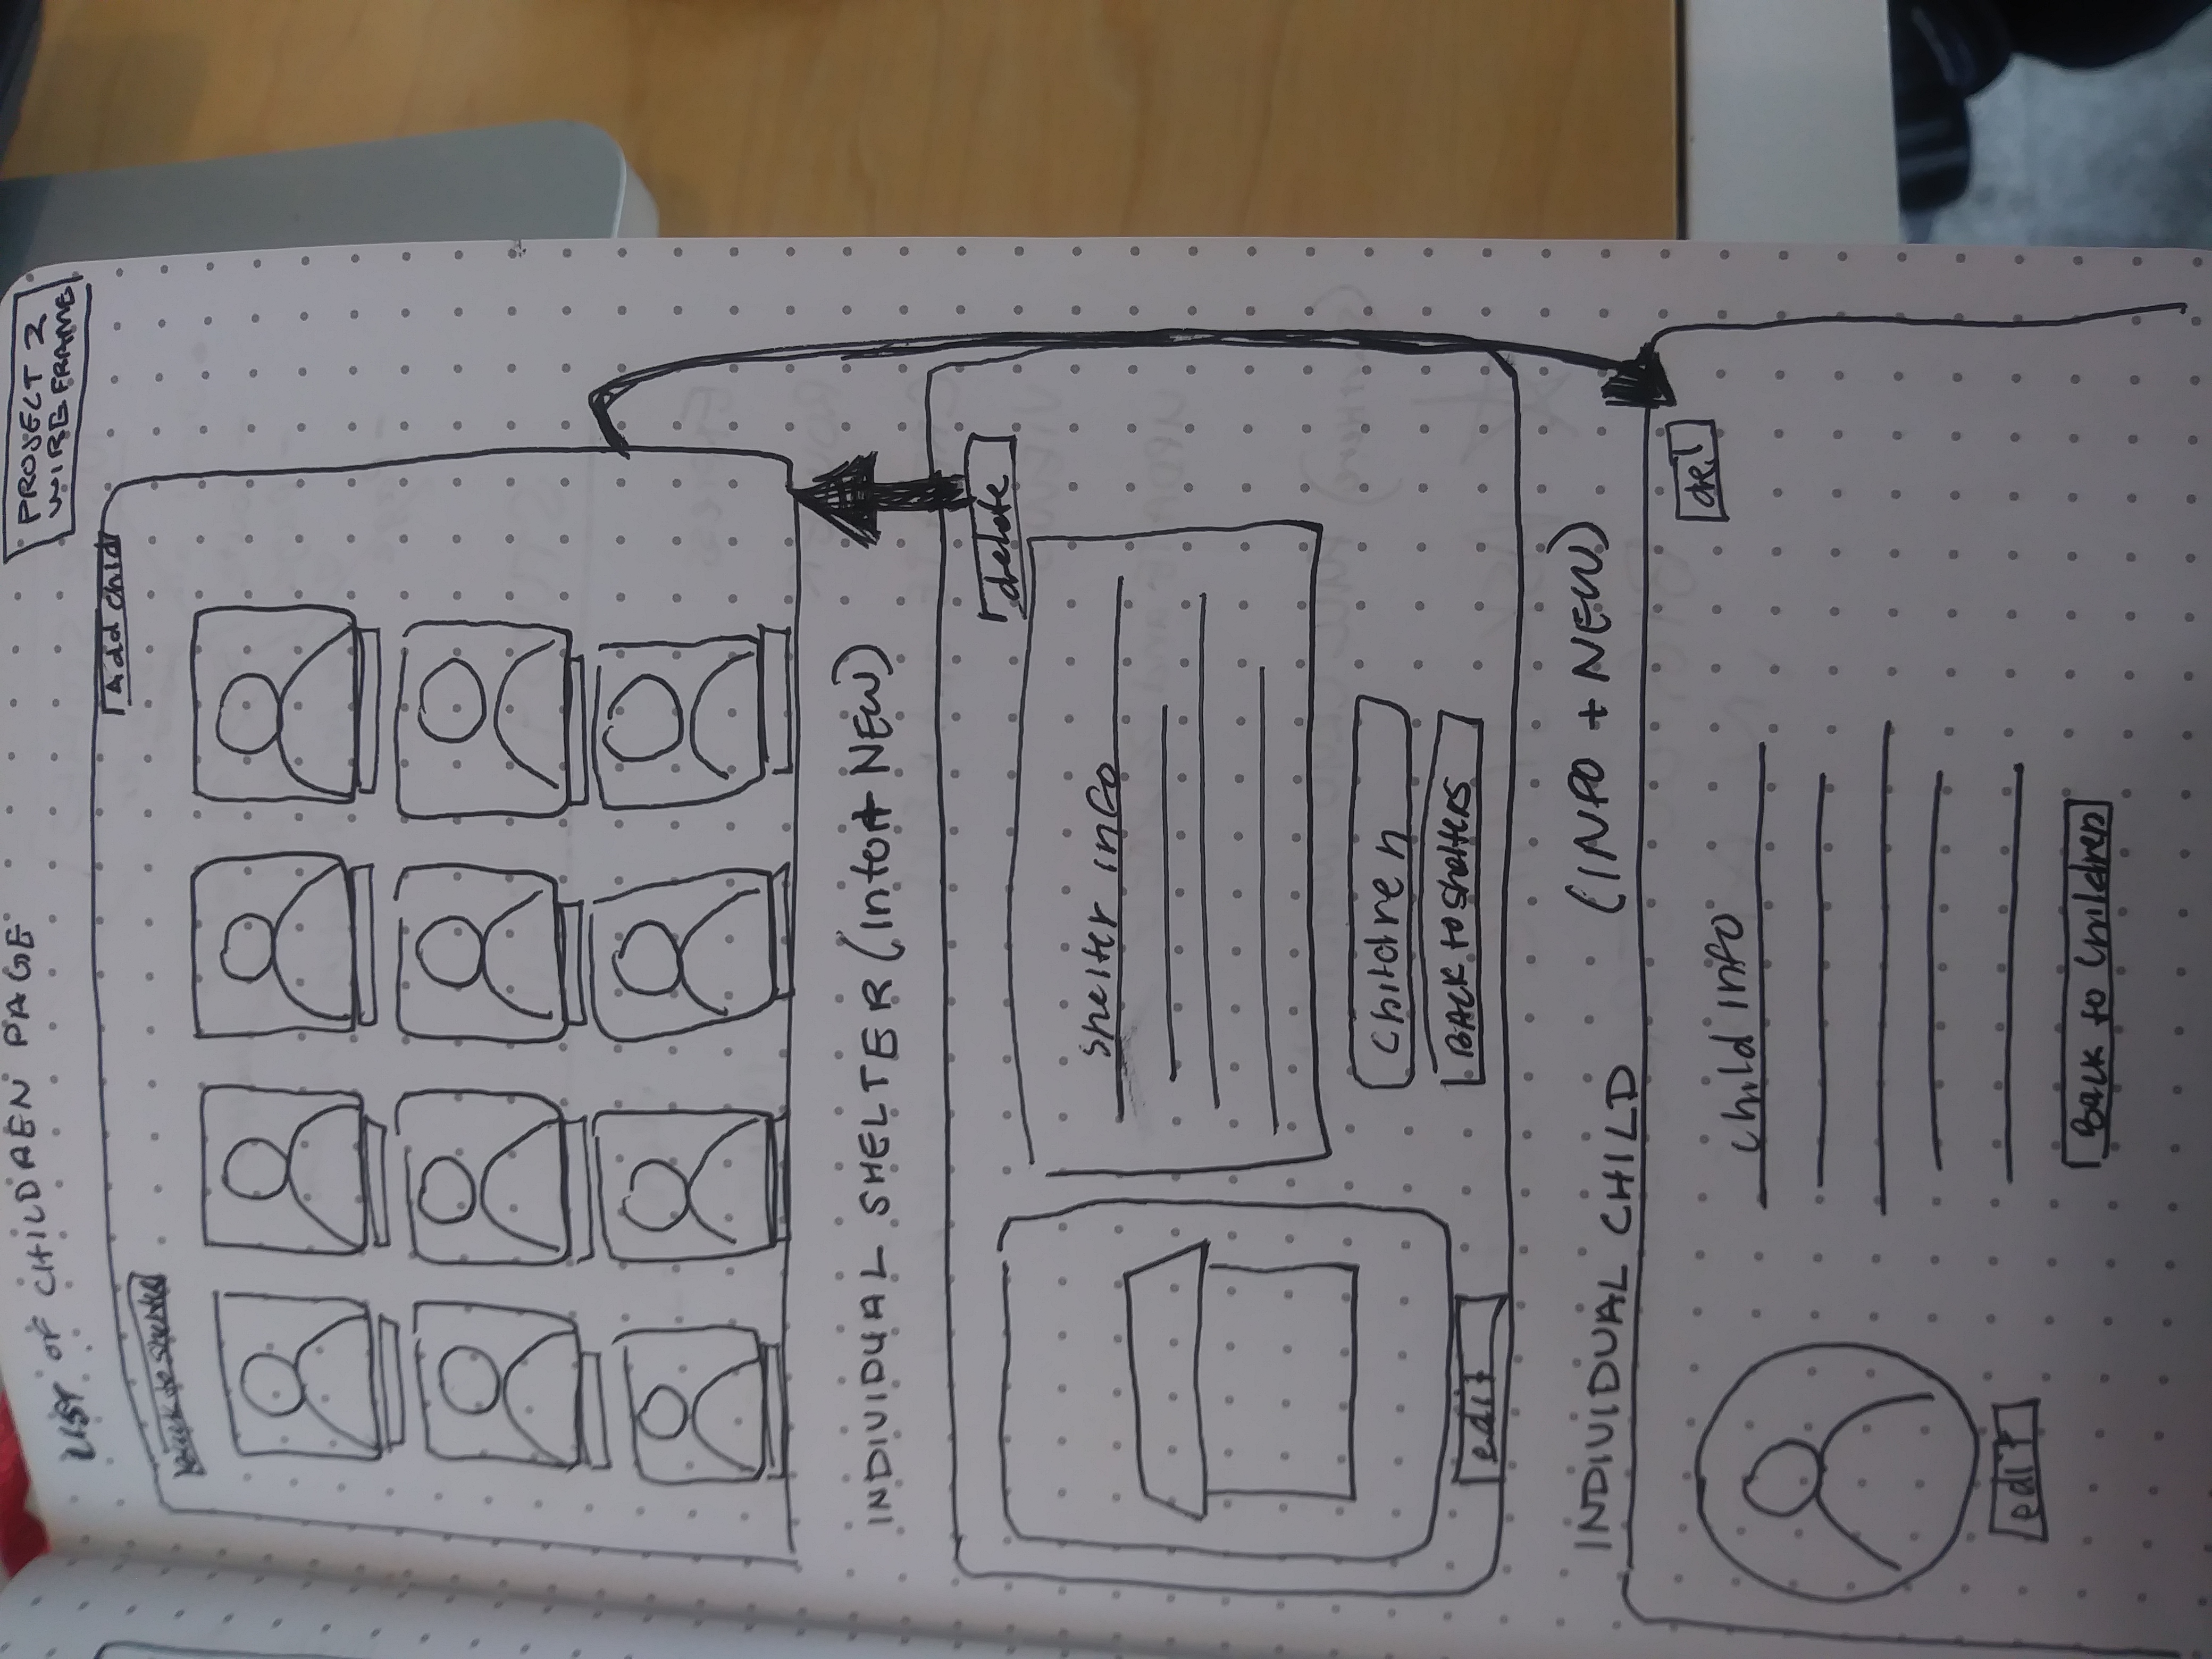 PROJECT 2
WIREFRAME
LIST OF CHILDREN PAGE
Add child
Back to Shelter
INDIVIDUAL SHELTER (Info + NEW)
delete
Shelter info
Children
BACK to Shelters
edit
INDIVIDUAL CHILD (INFO + NEW)
del
Child info
edit
Back to Children